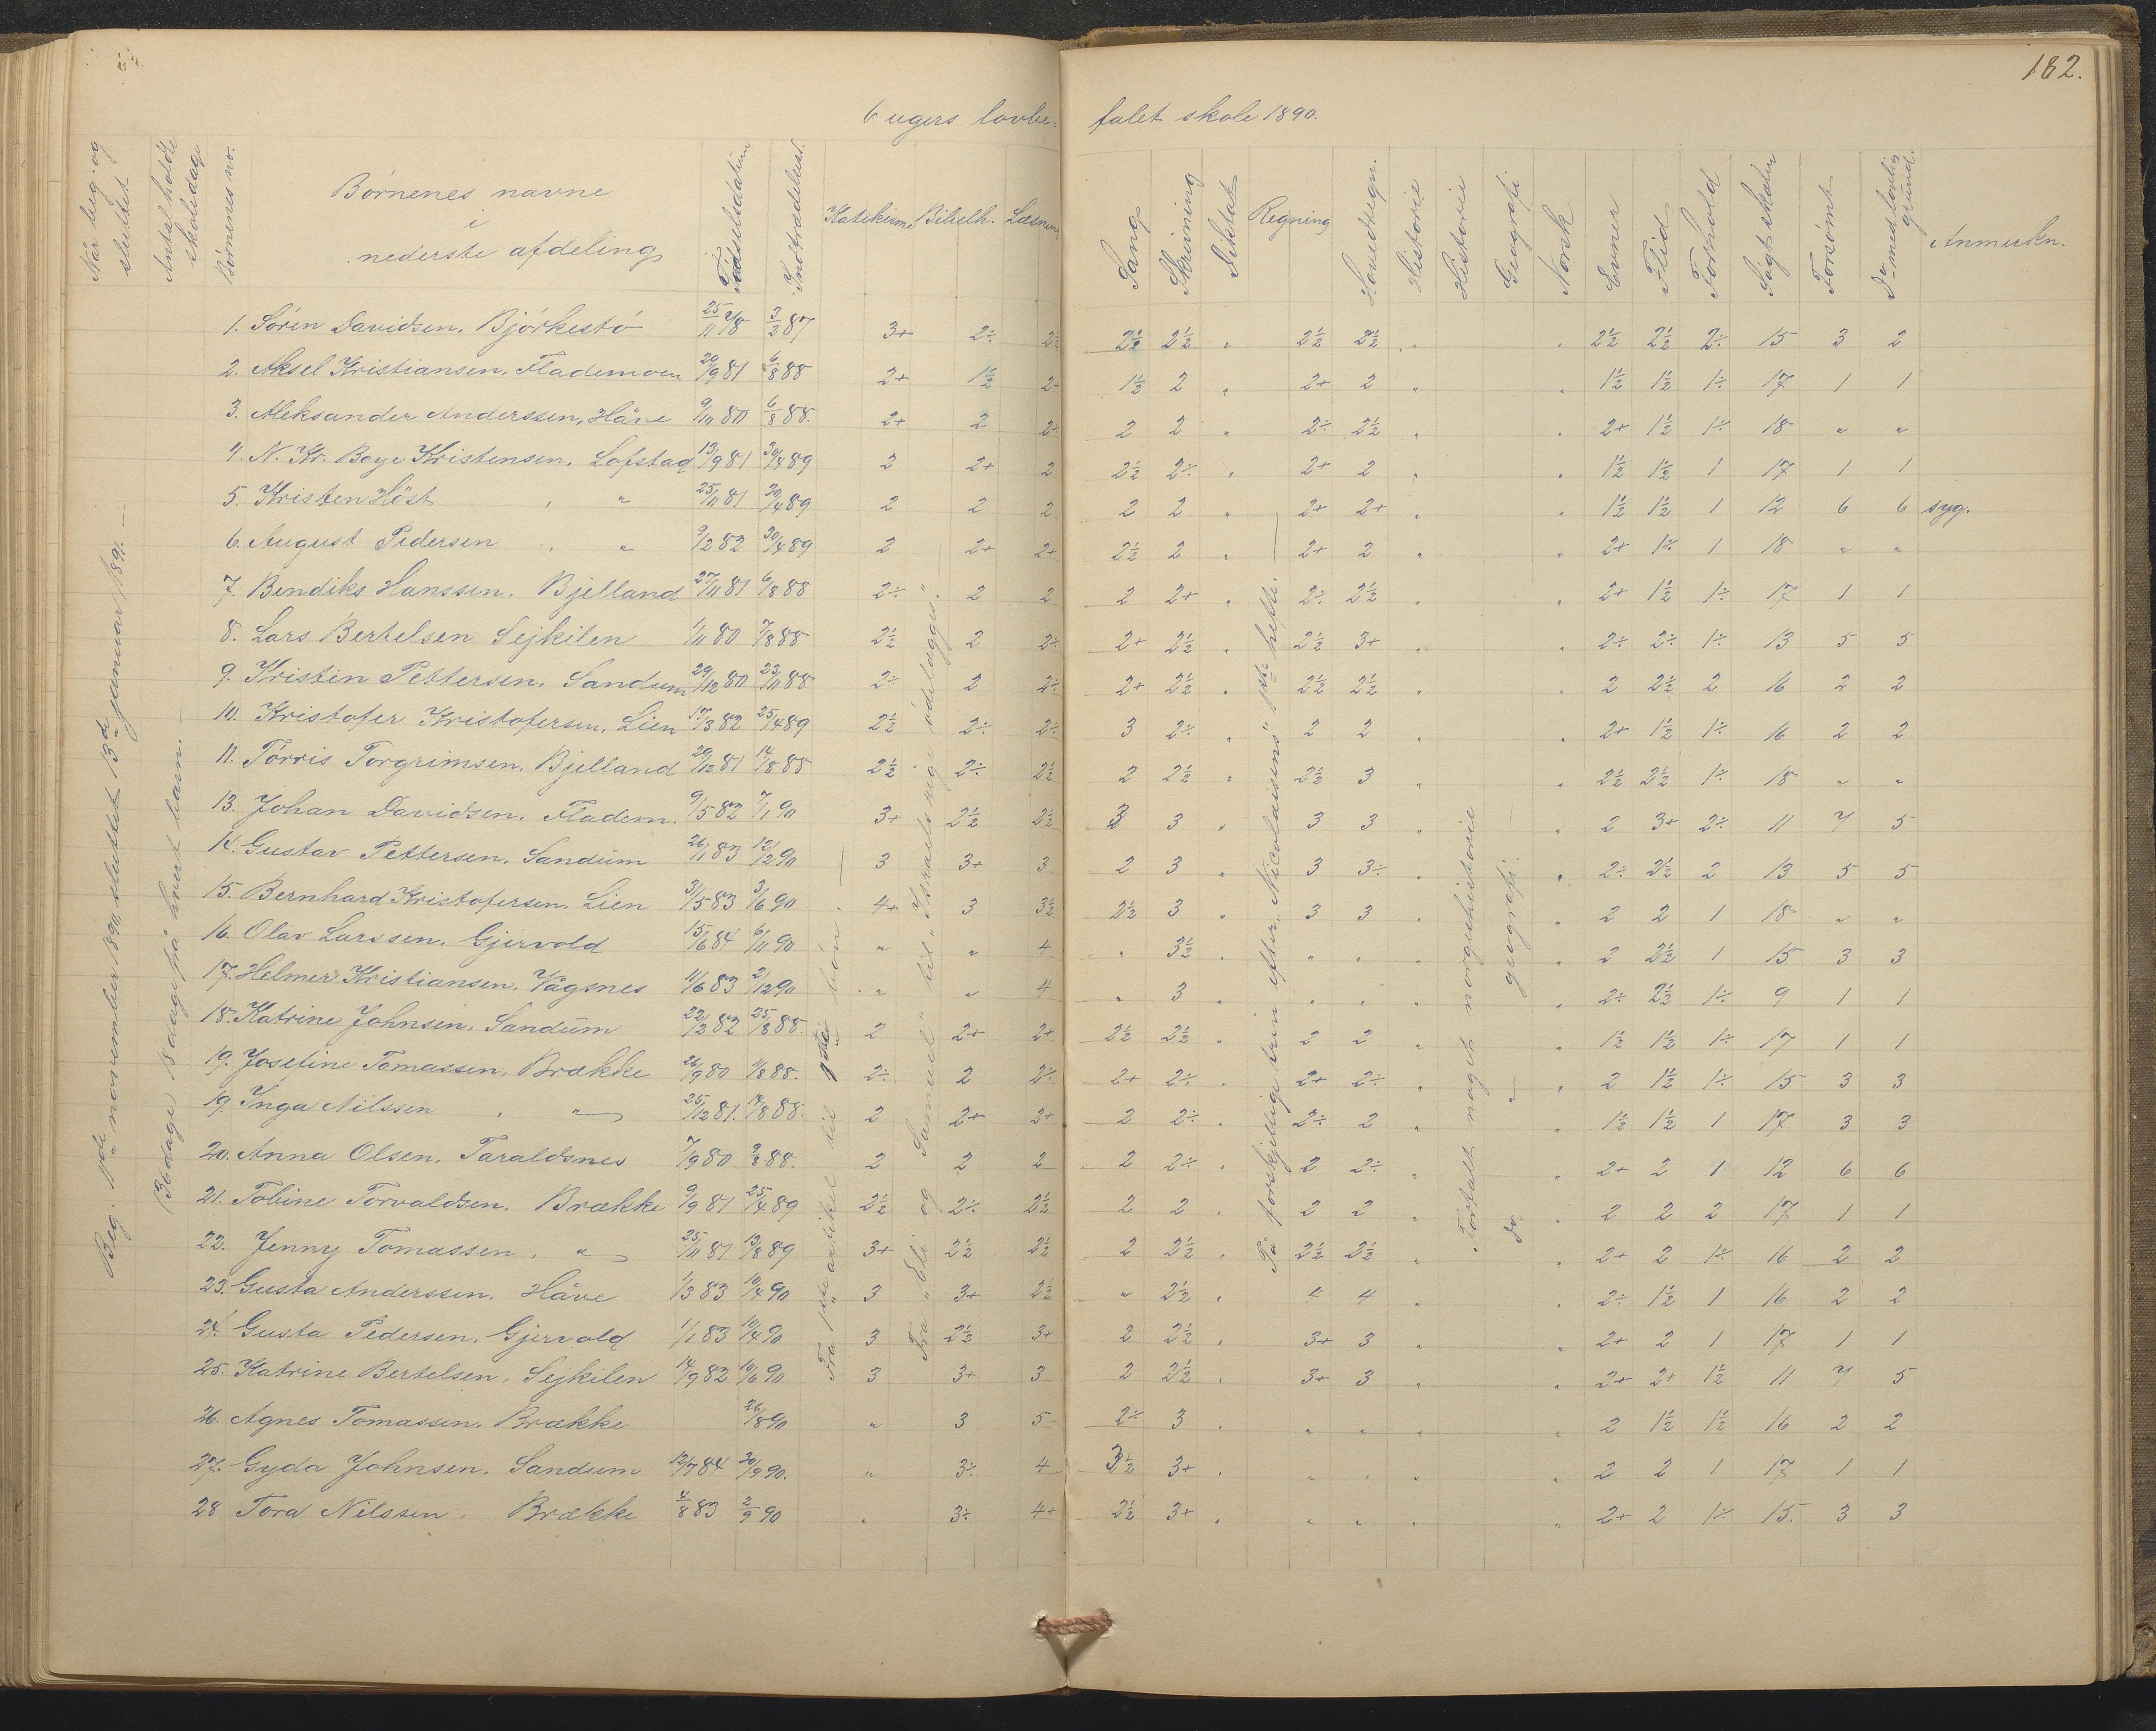 182.
6 ugers lovbe- falet skole 1890.
Når beg. og sluttet
Antal holdte skoledage
Børnenes no.
Børnenes navne
i
nederste afdeling
Fødselsdatum
Indtrædelsesd.
Katekisme Bibelh. Læsning Sang Skrivning Diktat Regning Hovedregn. Historie Historie Geografi Norsk Evner Flid Forhold Søgt skolen Forsømt Do med lovlig grund. Anmerkn.
Beg. 11te november 1890, sluttet 13de januar 1891. —
36 dage, 18 dage på hvert barn. —
1. Søren Davidsen. Bjørkestø 25/11 78 3/2 87 3+ 2÷ 2½ 2½ 2½ " 2½ 2½ " " 2½ 2½ 2÷ 15 3 2
2. Aksel Kristiansen. Flademoen 29/9 81 6/8 88 2+ 1½ 2÷ 1½ 2 " 2+ 2 " " 1½ 1½ 1÷ 17 1 1
3. Aleksander Anderssen, Håve 9/10 80 6/8 88. 2+ 2 2÷ 2 2 " 2÷ 2½ " " 2+ 1½ 1÷ 18 " "
4. N. Kr. Boye Kristensen. Lofstad 13/9 81 30/4 89 2 2+ 2 2½ 2÷ " 2+ 2 " " 1½ 1½ 1 17 1 1
5. Kristen Høst " " 25/11 81 30/4 89 2 2 2 2 2 " 2+ 2+ " " 1½ 1½ 1 12 6 6 syg.
6. August Pedersen " " 9/2 82 30/4 89 2 2+ 2+ 2½ 2 " 2+ 2 " " 2+ 1÷ 1 18 " "
7. Bendiks Hanssen. Bjelland 27/11 81 6/8 88 2÷ 2 2 2 2+ " 2÷ 2½ " " 2+ 1½ 1÷ 17 1 1
8. Lars Bertelsen Sejkilen 1/11 80 7/8 88 2½ 2 2÷ 2+ 2½ " 2½ 3+ " " 2÷ 2÷ 1÷ 13 5 5
9. Kristen Pettersen. Sandum 29/12 80 23/11 88 2÷ 2 2÷ 2+ 2½ " 2½ 2½ " " 2 2½ 2 16 2 2
10. Kristofer Kristofersen. Lien 17/3 82 25/4 89 2½ 2÷ 2÷ 3 2÷ " 2 2 " " 2+ 1½ 1÷ 16 2 2
11. Tørris Torgrimsen. Bjelland 29/12 81 14/8 88 2½ 2÷ 2½ 2 2½ " 2½ 3 " " 2½ 2½ 1÷ 18 " "
13. Johan Davidsen. Fladem. 9/5 82 7/1 90 3+ 2½ 2½ 3 3 " 3 3 " " 2 3+ 2÷ 11 7 5
14. Gustav Pettersen. Sandum 26/1 83 12/2 90 3 3+ 3 2 3 " 3 3÷ " " 2÷ 2½ 2 13 5 5
15. Bernhard Kristofersen. Lien 31/5 83 3/6 90 4+ 3 3½ 2½ 3 " 3 3 " " 2 2 1 18 " "
16. Olav Larssen. Gjervold 15/6 84 6/11 90 " " 4 " 3½ " " " " " 2 2½ 1 15 3 3
17. Helmer Kristiansen. Vågsnes 11/6 83 2/12 90 " " 4 " 3 " " " " " 2÷ 2½ 1÷ 9 1 1
18. Katrine Johnsen. Sandum 22/2 82 25/8 88. 2 2+ 2+ 2½ 2½ " 2 2 " " 1½ 1½ 1÷ 17 1 1
19. Josefine Tomassen, Brække 26/9 80 11/8 88. 2÷ 2 2÷ 2+ 2÷ " 2+ 2÷ " " 2 1½ 1÷ 15 3 3
19. Inga Nilssen " " 25/12 81. 7/8 88. 2 2+ 2+ 2 2÷ " 2÷ 2 " " 1½ 1½ 1 17 3 3
20. Anna Olsen. Taraldsnes 7/9 80 9/8 88. 2 2 2 2 2÷ " 2 2÷ " " 2+ 2 1 12 6 6
21. Tobine Torvaldsen. Brække 9/9 81 25/4 89 2½ 2÷ 2½ 2 2 " 2 2 " " 2 2 2 17 1 1
22. Jenny Tomassen. " 25/11 81 13/8 89 3+ 2½ 2½ 2 2½ " 2½ 2½ " " 2+ 2 1÷ 16 2 2
23. Gusta Anderssen. Håve 1/3 83 10/4 90 3 3+ 2½ " 2½ " 4 4 " " 2÷ 1½ 1 16 2 2
24. Gusta Pedersen, Gjervold 1/1 83 10/4 90 3 2½ 3+ 2 2½ " 3+ 3 " " 2+ 2 1 17 1 1
25. Katrine Bertelsen, Sejkilen 14/9 82 10/6 90 3 3+ 3 2 2½ " 3+ 3 " " 2+ 2+ 1½ 11 7 5
26. Agnes Tomassen. Brække 26/8 90 " 3 5 2÷ 3 " " " " " 2 1½ 1½ 16 2 2
27. Gyda Johnsen. Sandum 12/7 84 30/9 90. " 3÷ 4 3½ 3+ " " " " " 2 2 1 17 1 1
28 Tora Nilssen. Brække 4/8 83 2/9 90 " 3÷ 4+ 2½ 3+ " " " " " 2+ 2 1÷ 15. 3 3
Fra 1ste artikel til 1ste bøn. —
Fra "Eli og Samuel" til "Israels rige ødelægges". —
På forskjellige trin efter "Nicolaisens" 1ste hefte. —
Fortalt noget norgeshistorie —
Do " geografi. —